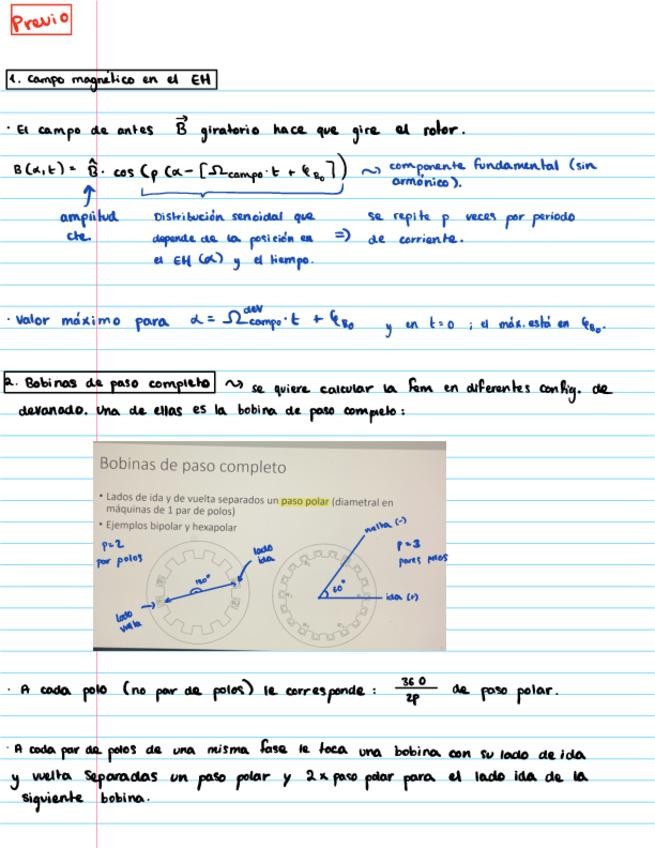 Previo
1. Campo magnético en el EH
· El campo de antes B⃗ giratorio hace que gire el rotor.
B(α,t) = B̂ · cos (p (α - [Ω campo · t + φ_B₀])) ⇝ componente fundamental (sin
armónico).
amplitud
cte.
Distribución senoidal que
depende de la posición en
el EH (α) y el tiempo.
=> se repite p veces por periodo
de corriente.
· Valor máximo para α = Ω^dev_campo · t + φ_B₀ y en t=0 ; el máx. está en φ_B₀.
2. Bobinas de paso completo ⇝ se quiere calcular la fem en diferentes config. de
devanado. Una de ellas es la bobina de paso completo:
Bobinas de paso completo
• Lados de ida y de vuelta separados un paso polar (diametral en
máquinas de 1 par de polos)
• Ejemplos bipolar y hexapolar
p=2
par polos
lado
ida
180°
lado
vuelta
vuelta (-)
p=3
pares polos
60°
ida (+)
· A cada polo (no par de polos) le corresponde : 360/2p de paso polar.
· A cada par de polos de una misma fase le toca una bobina con su lado de ida
y vuelta separadas un paso polar y 2x paso polar para el lado ida de la
siguiente bobina.